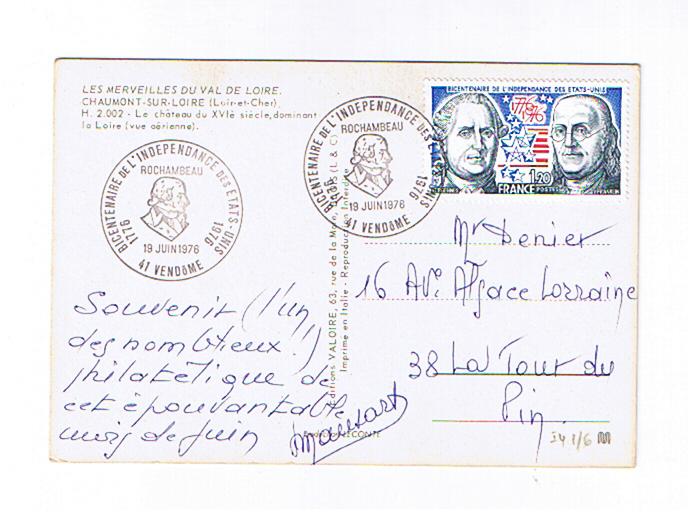 LES MERVEILLES DU VAL DE LOIRE.
CHAUMONT-SUR-LOIRE (Loir-et-Cher).
H. 2.002 - Le château du XVIè siècle, dominant
la Loire (vue aérienne).
BICENTENAIRE DE L'INDEPENDANCE DES ETATS-UNIS
ROCHAMBEAU
1776
1976
19 JUIN 1976
41 VENDÔME
BICENTENAIRE DE L'INDEPENDANCE DES ETATS-UNIS
ROCHAMBEAU
1776
1976
19 JUIN 1976
41 VENDÔME
BICENTENAIRE DE L'INDEPENDANCE DES ETATS-UNIS
1776
1976
1.20
FRANCE POSTES
Editions VALOIRE, 63, rue de la Mare,
Imprimé en Italie - Reproduction Interdite
Souvenir (l'un
des nombreux !)
philatélique de
cet épouvantable
mois de juin
Mansart
LECONTE
Mr Denier
16 Ave Alsace Lorraine
38 La Tour du
Pin.